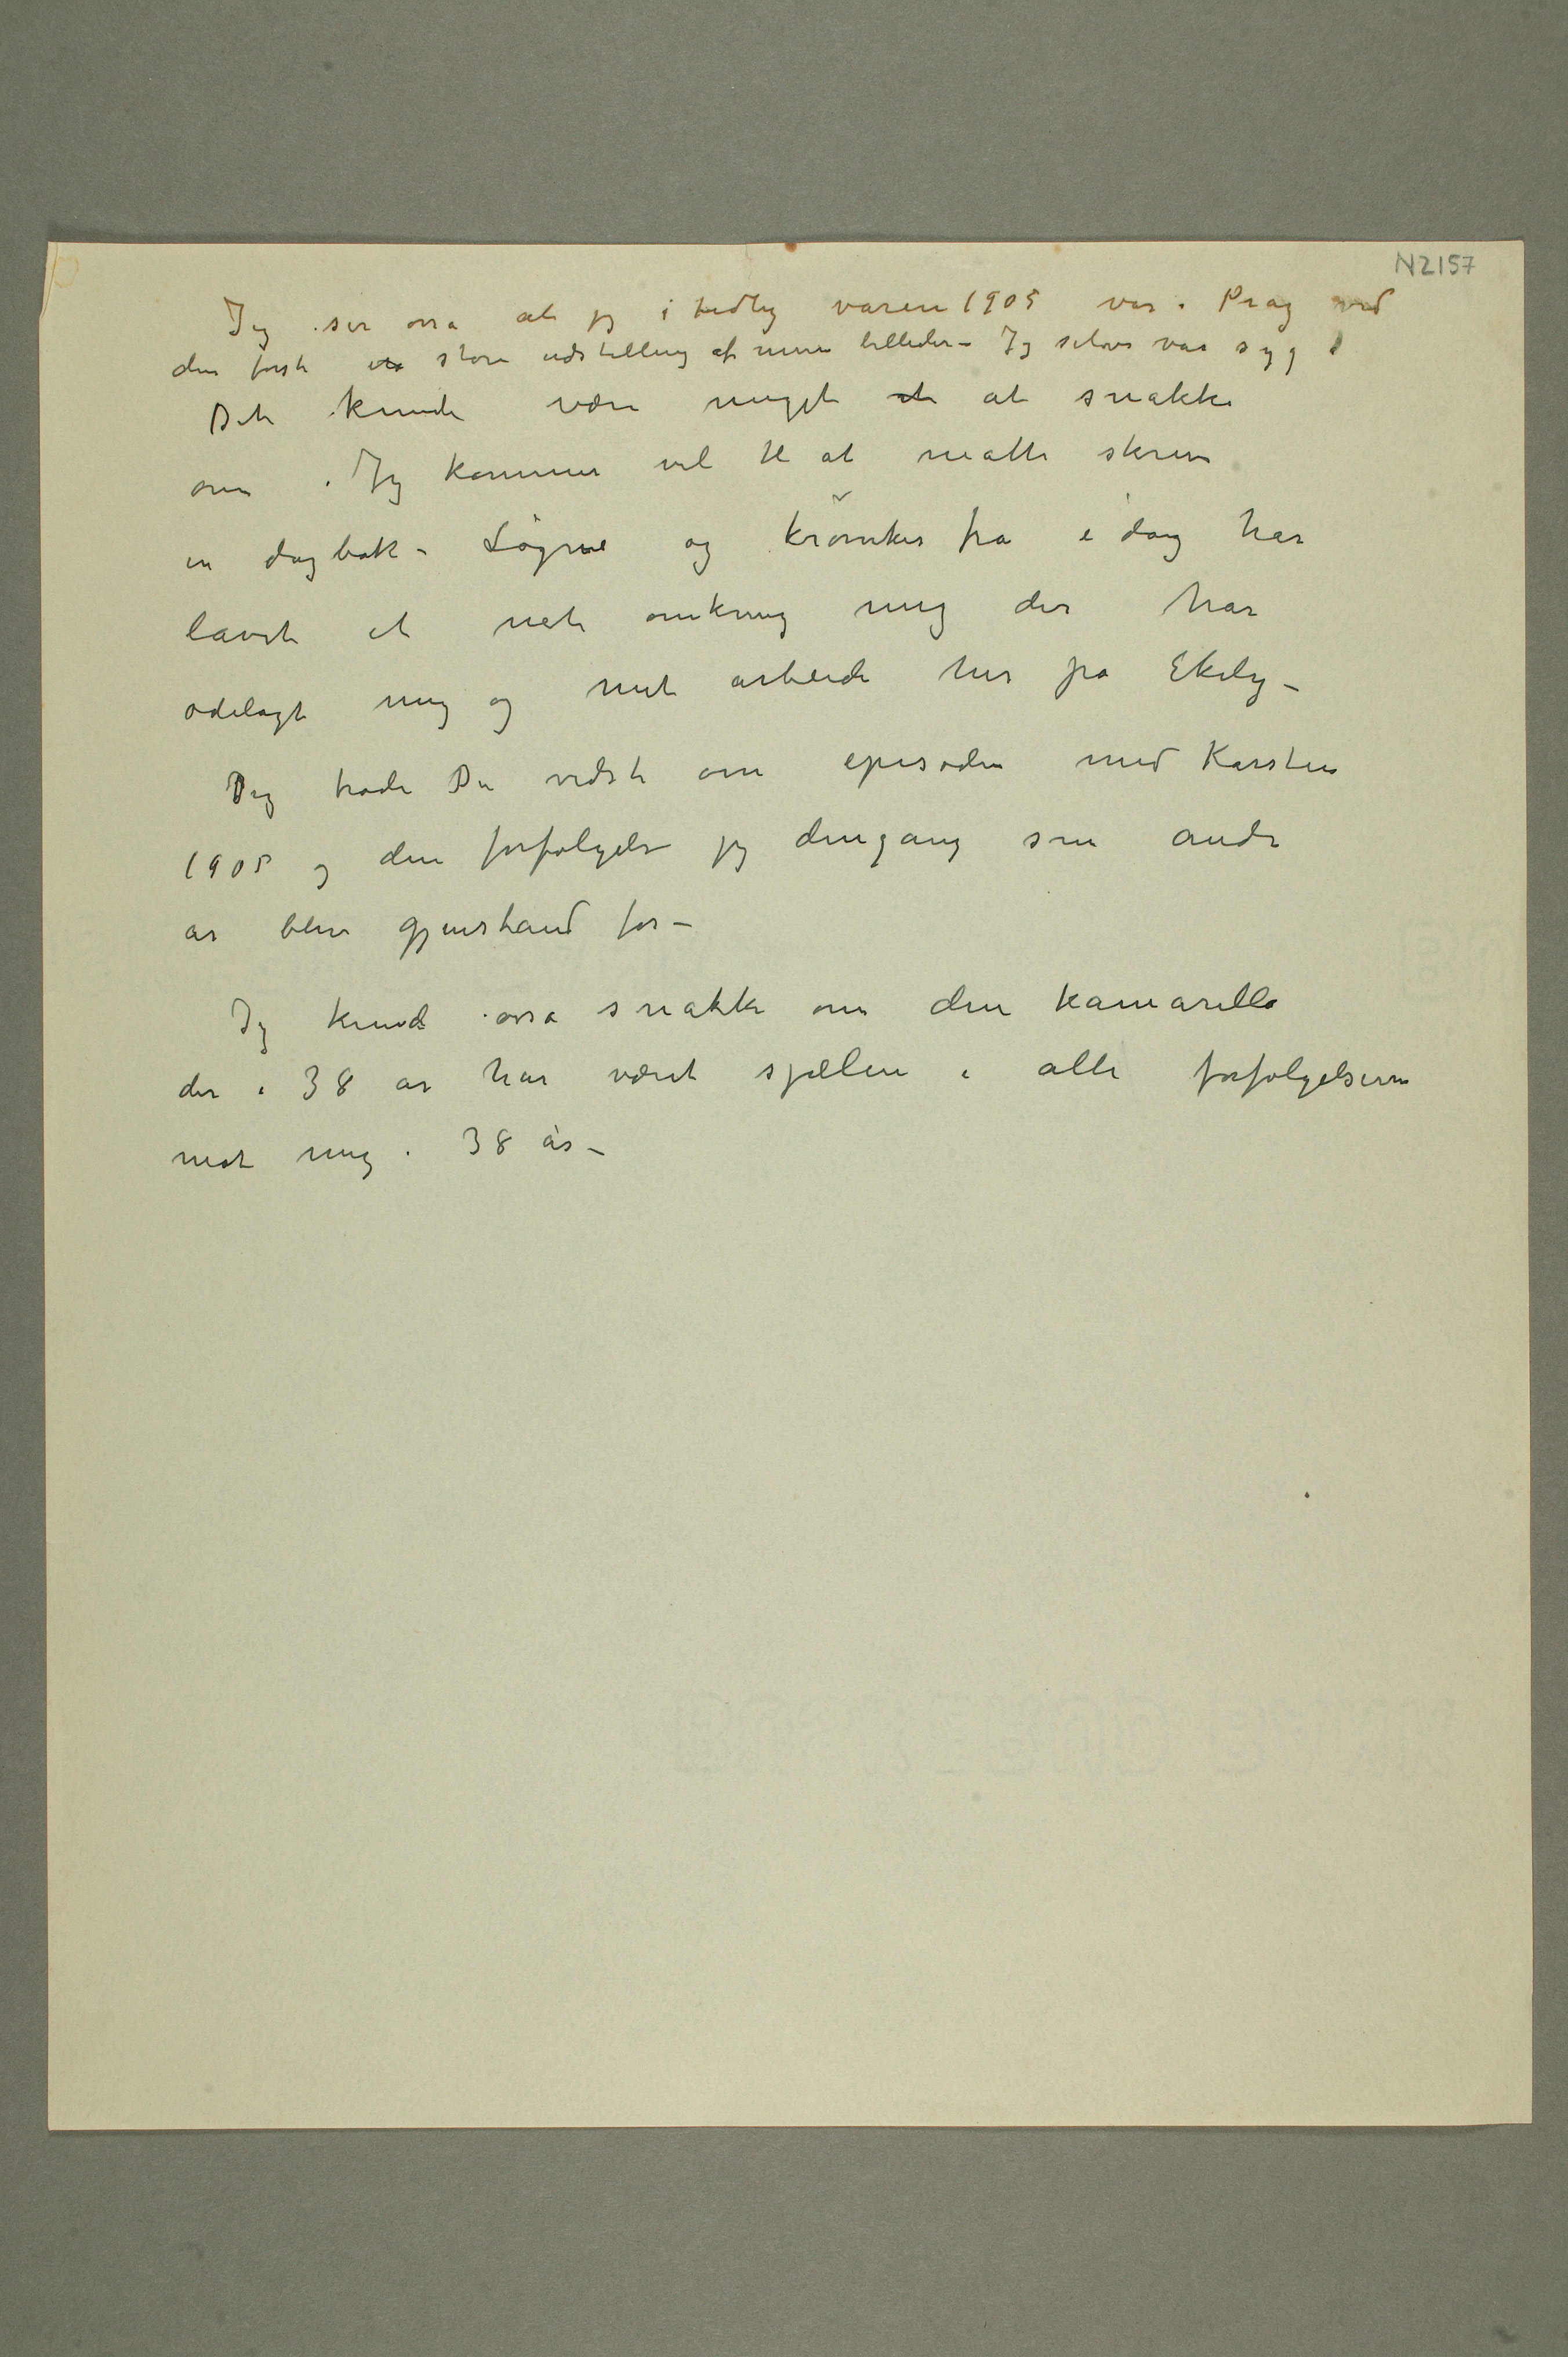 N2157
Jeg ser osså at jeg i tidlig våren 1905 var i Prag ved
den første store udstilling af mine billeder – Jeg selver var syg
Det kunde være meget at snakke
om . Jeg kommer vel til at måtte skrive
en dagbok – Løgne og krøniker fra i dag har
lavet et net omkring mig der har
ødelagt mig og mit arbeide her på Ekely –
Jeg trode Du vidste om episoden med Karsten
1905 og den forfølgelse jeg dengang som andre
år blev gjenstand for –
Jeg kunde osså snakke om den kamarilla
der i 38 år har været sjælen i alle forfølgelserne
mot mig i 38 år –